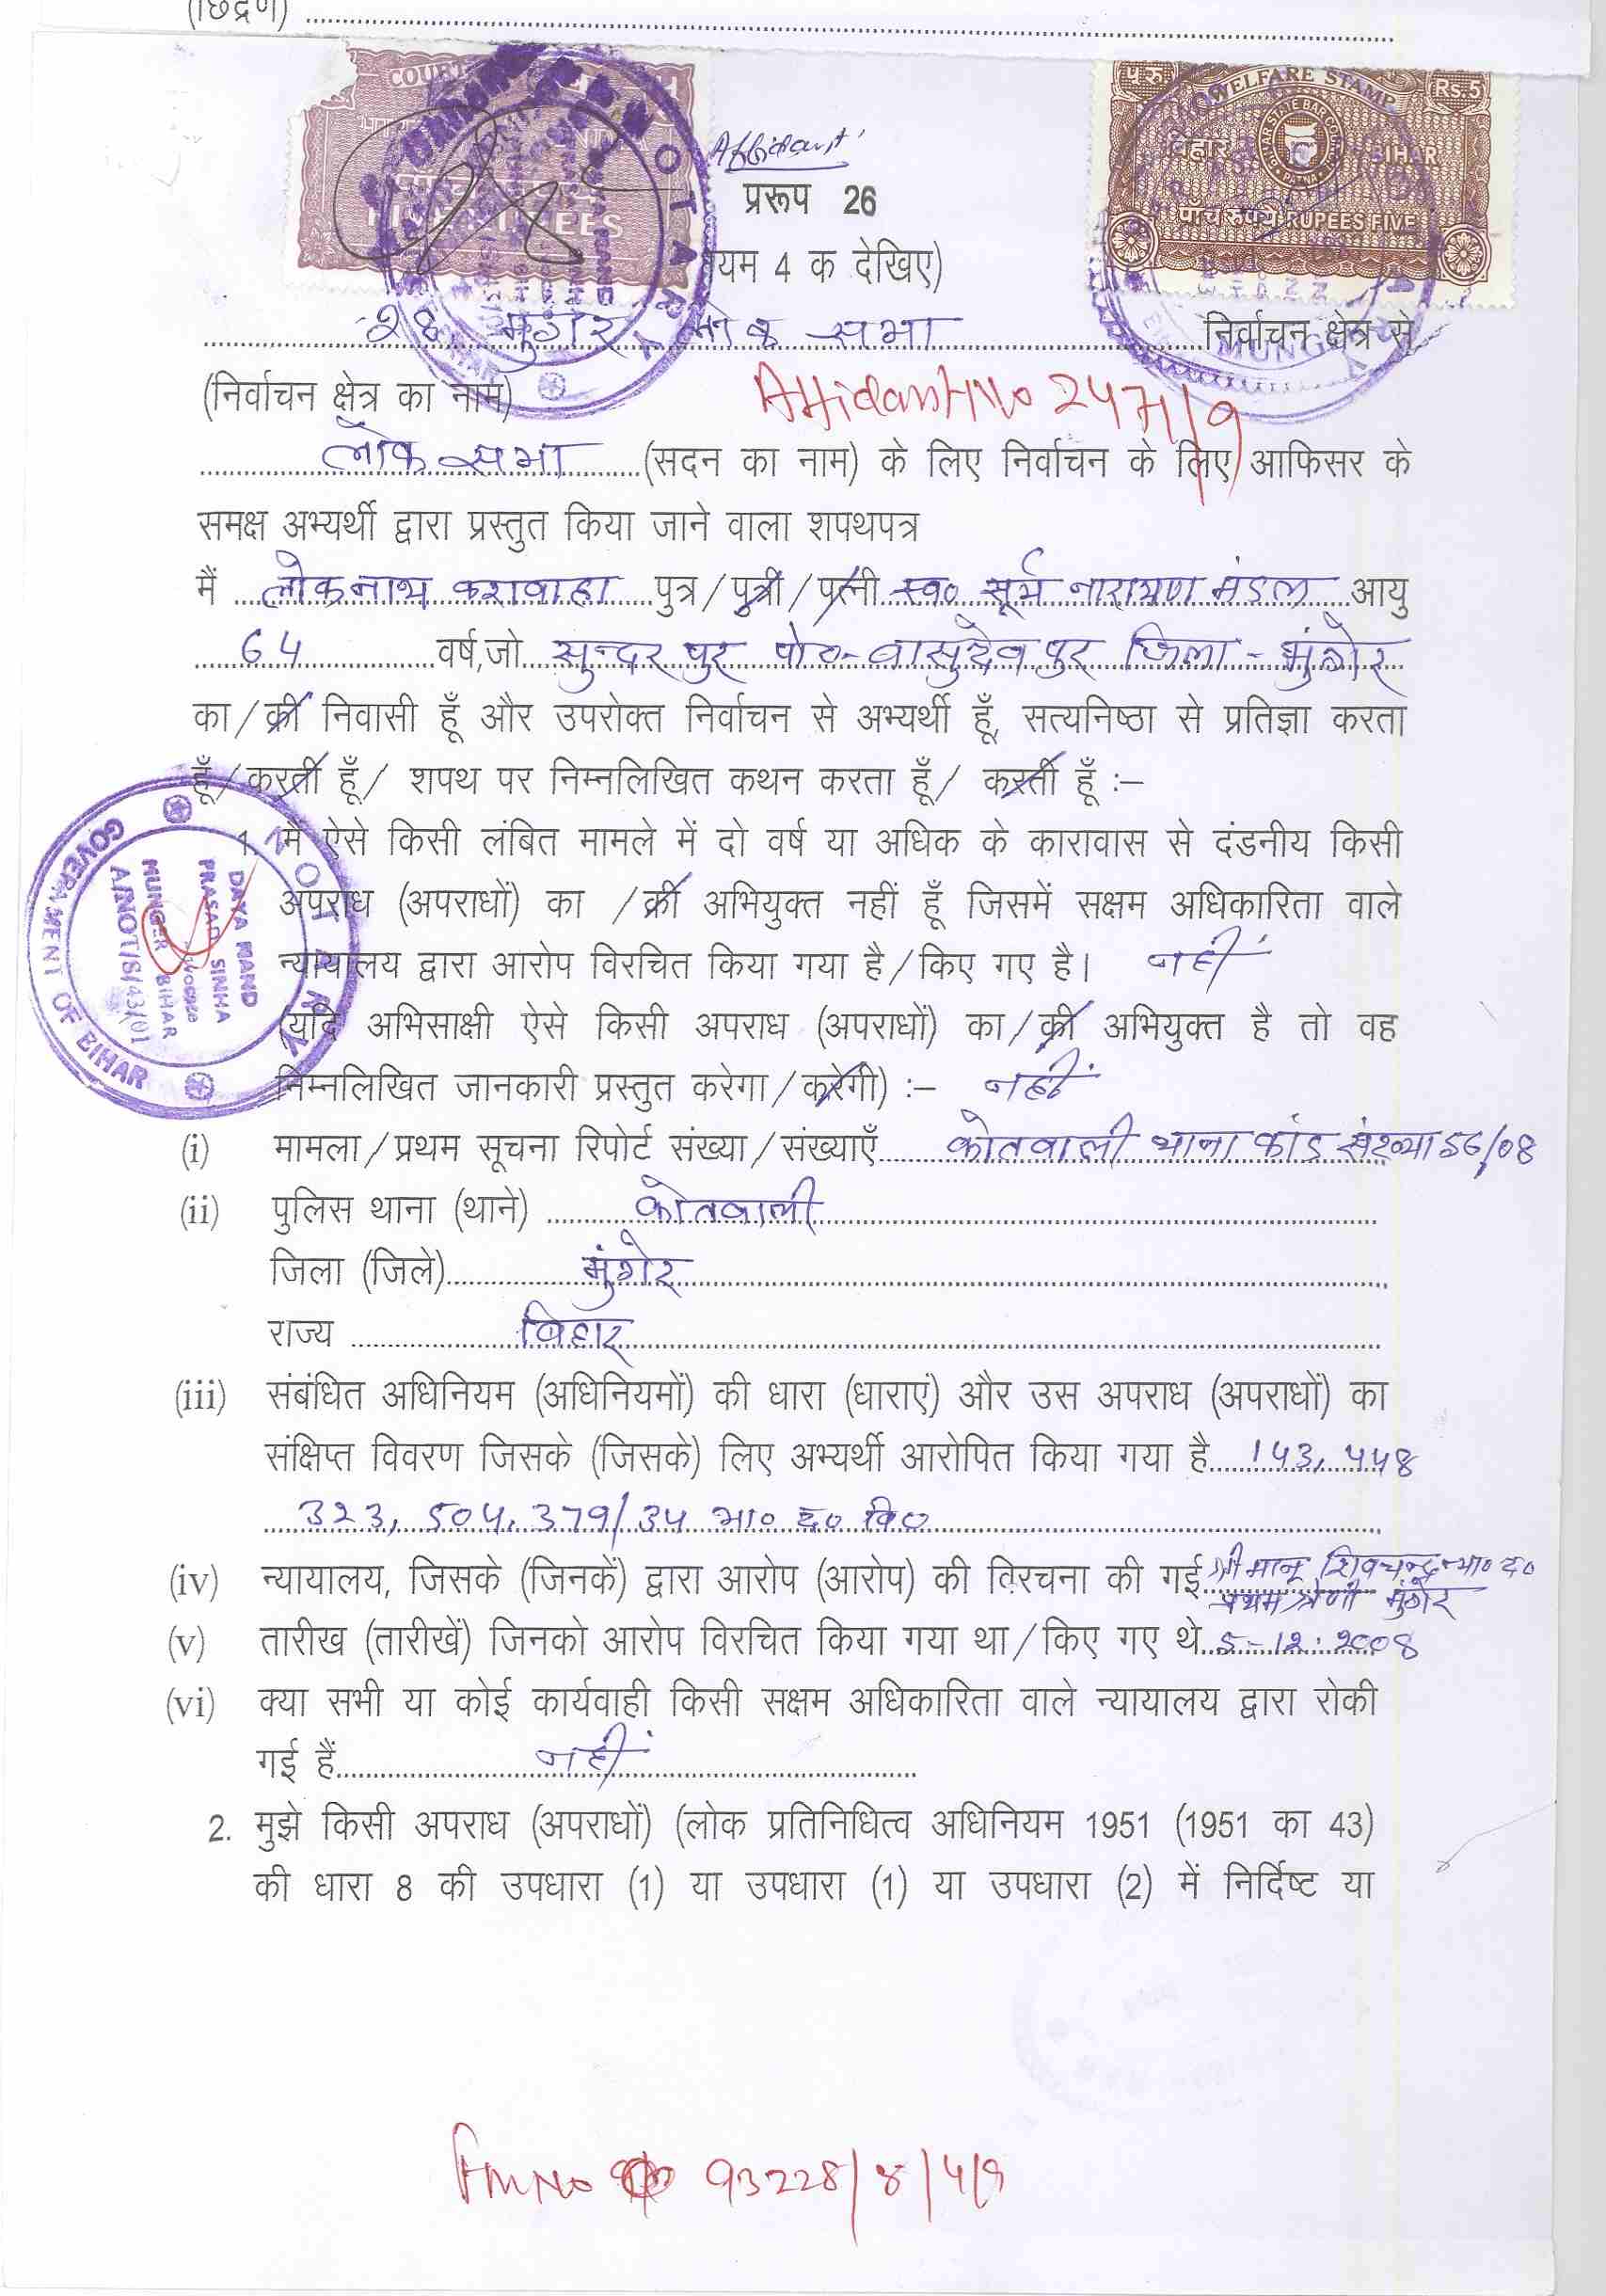 (छिद्रण)
Affidavit
प्ररूप 26
यम 4 क देखिए)
28 मुंगेर लोक सभा निर्वाचन क्षेत्र से
(निर्वाचन क्षेत्र का नाम)
Affidavit No 2471/9
लोक सभा (सदन का नाम) के लिए निर्वाचन के लिए आफिसर के
समक्ष अभ्यर्थी द्वारा प्रस्तुत किया जाने वाला शपथपत्र
मैं लोकनाथ कशवाहा पुत्र/पुत्री/पत्नी स्व० सूर्य नारायण मंडल आयु
64 वर्ष,जो सुन्दरपुर पो०-वासुदेवपुर जिला-मुंगेर
का/की निवासी हूँ और उपरोक्त निर्वाचन से अभ्यर्थी हूँ, सत्यनिष्ठा से प्रतिज्ञा करता
हूँ/करती हूँ/ शपथ पर निम्नलिखित कथन करता हूँ/ करती हूँ :–
1. मैं ऐसे किसी लंबित मामले में दो वर्ष या अधिक के कारावास से दंडनीय किसी
अपराध (अपराधों) का /की अभियुक्त नहीं हूँ जिसमें सक्षम अधिकारिता वाले
न्यायालय द्वारा आरोप विरचित किया गया है/किए गए है। नहीं
(यदि अभिसाक्षी ऐसे किसी अपराध (अपराधों) का/की अभियुक्त है तो वह
निम्नलिखित जानकारी प्रस्तुत करेगा/करेगी) :– नहीं
(i) मामला/प्रथम सूचना रिपोर्ट संख्या/संख्याएँ कोतवाली थाना कांड संख्या 56/08
(ii) पुलिस थाना (थाने) कोतवाली
जिला (जिले) मुंगेर
राज्य बिहार
(iii) संबंधित अधिनियम (अधिनियमों) की धारा (धाराएं) और उस अपराध (अपराधों) का
संक्षिप्त विवरण जिसके (जिसके) लिए अभ्यर्थी आरोपित किया गया है 143, 448
323, 504, 379/34 भा० द० वि०
(iv) न्यायालय, जिसके (जिनकें) द्वारा आरोप (आरोप) की विरचना की गई श्रीमान् शिवचन्द्र न्या० द०
प्रथम श्रेणी मुंगेर
(v) तारीख (तारीखें) जिनको आरोप विरचित किया गया था/किए गए थे 5-12-2008
(vi) क्या सभी या कोई कार्यवाही किसी सक्षम अधिकारिता वाले न्यायालय द्वारा रोकी
गई हैं नहीं
2. मुझे किसी अपराध (अपराधों) (लोक प्रतिनिधित्व अधिनियम 1951 (1951 का 43)
की धारा 8 की उपधारा (1) या उपधारा (1) या उपधारा (2) में निर्दिष्ट या
93228/8/4/9
COURT
RUPEES
WELFARE STAMP
Rs.5
बिहार BIHAR
पाँच रुपये RUPEES FIVE
NOTARY
GOVERNMENT OF BIHAR
DAYA NAND
PRASAD SINHA
MUNGER BIHAR